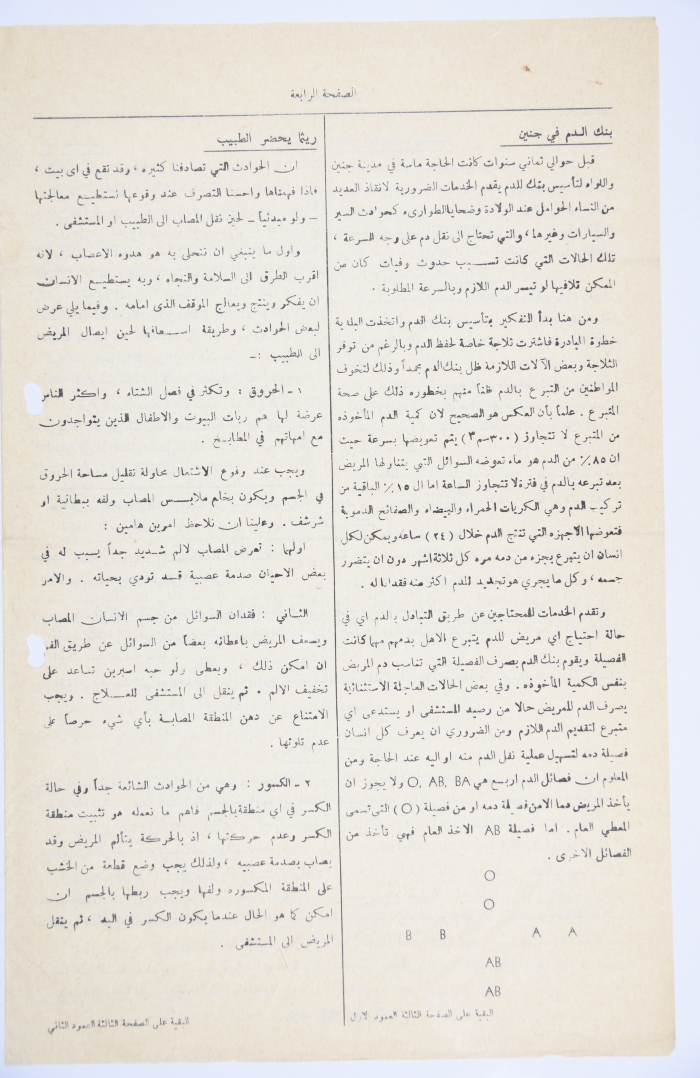 الصفحة الرابعة
بنك الدم في جنين
قبل حوالي ثماني سنوات كانت الحاجة ماسة في مدينة جنين
واللواء لتأسيس بنك للدم يقدم الخدمات الضرورية لانقاذ العديد
من النساء الحوامل عند الولادة وضحايا الطوارىء كحوادث السير
والسيارات وغيرها ، والتي تحتاج الى نقل دم على وجه السرعة ،
تلك الحالات التي كانت تسبب حدوث وفيات كان من
الممكن تلافيها لو تيسر الدم اللازم وبالسرعة المطلوبة .
ومن هنا بدأ التفكير بتأسيس بنك الدم واتخذت البلدية
خطوة المبادرة فاشترت ثلاجة خاصة لحفظ الدم وبالرغم من توفر
الثلاجة وبعض الآلات اللازمة ظل بنك الدم مجمداً وذلك لتخوف
المواطنين من التبرع بالدم ظناً منهم بخطوره ذلك على صحة
المتبرع . علماً بأن العكس هو الصحيح لان كمية الدم المأخوذه
من المتبرع لا تتجاوز (٣٠٠سم٣) يتم تعويضها بسرعة حيث
ان ٨٥٪ من الدم هو ماء تعوضه السوائل التي يتناولها المريض
بعد تبرعه بالدم في فترة لا تتجاوز الساعة اما ال ١٥٪ الباقية من
تركيب الدم وهي الكريات الحمراء والبيضاء والصفائح الدموية
فتعوضها الاجهزه التي تنتج الدم خلال (٢٤) ساعه ويمكن لكل
انسان ان يتبرع بجزء من دمه مره كل ثلاثة اشهر دون ان يتضرر
جسمه ، وكل ما يجري هو تجديد للدم اكثر منه فقدانا له .
وتقدم الخدمات للمحتاجين عن طريق التبادل بالدم اي في
حالة احتياج اي مريض للدم يتبرع الاهل بدمهم مهما كانت
الفصيلة ويقوم بنك الدم بصرف الفصيلة التي تناسب دم المريض
بنفس الكمية المأخوذه . وفي بعض الحالات العاجلة الاستثنائية
يصرف الدم للمريض حالا من رصيد المستشفى او يستدعى اي
متبرع لتقديم الدم اللازم ومن الضروري ان يعرف كل انسان
فصيلة دمه لتسهيل عملية نقل الدم منه او اليه عند الحاجة ومن
المعلوم ان فصائل الدم اربع هي O, AB, BA ولا يجوز ان
يأخذ المريض دما الا من فصيلة دمه او من فصيلة (O) التي تسمى
المعطي العام . اما فصيلة AB الاخذ العام فهي تأخذ من
الفصائل الاخرى .
O
O
B B A A
AB
AB
البقية على الصفحة الثالثة العمود الاول
ريثما يحضر الطبيب
ان الحوادث التي تصادفنا كثيره ، وقد تقع في اي بيت ،
فاذا فهمناها واحسنا التصرف عند وقوعها نستطيع معالجتها
– ولو مبدئياً – لحين نقل المصاب الى الطبيب او المستشفى .
واول ما ينبغي ان نتحلى به هو هدوء الاعصاب ، لانه
اقرب الطرق الى السلامة والنجاه ، وبه يستطيع الانسان
ان يفكر وينتج ويعالج الموقف الذى امامه . وفيما يلي عرض
لبعض الحوادث ، وطريقة اسعافها لحين ايصال المريض
الى الطبيب :–
١ – الحروق : وتكثر في فصل الشتاء ، واكثر الناس
عرضة لها هم ربات البيوت والاطفال الذين يتواجدون
مع امهاتهم في المطابخ .
ويجب عند وقوع الاشتعال محاولة تقليل مساحة الحروق
في الجسم ويكون بخلع ملابس المصاب ولفه ببطانية او
شرشف . وعلينا ان نلاحظ امرين هامين :
اولها : تعرض المصاب لالم شديد جداً يسبب له في
بعض الاحيان صدمة عصبية قد تودي بحياته . والامر
الثاني : فقدان السوائل من جسم الانسان المصاب
ويسعف المريض باعطائه بعضاً من السوائل عن طريق الفم
ان امكن ذلك ، ويعطى ولو حبه اسبرين تساعد على
تخفيف الالم . ثم ينقل الى المستشفى للعلاج . ويجب
الامتناع عن دهن المنطقة المصابة بأي شيء حرصاً على
عدم تلوثها .
٢ – الكسور : وهي من الحوادث الشائعة جداً وفي حالة
الكسر في اي منطقة بالجسم فاهم ما نعمله هو تثبيت منطقة
الكسر وعدم حركتها ، اذ بالحركة يتألم المريض وقد
يصاب بصدمة عصبيه ، ولذلك يجب وضع قطعة من الخشب
على المنطقة المكسوره ولفها ويجب ربطها بالجسم ان
امكن كما هو الحال عندما يكون الكسر في اليد ، ثم ينقل
المريض الى المستشفى .
البقية على الصفحة الثالثة العمود الثاني